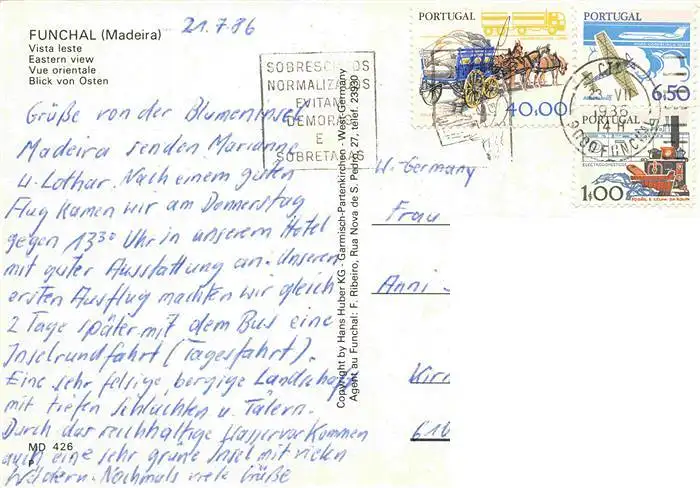 FUNCHAL (Madeira)
Vista leste
Eastern view
Vue orientale
Blick von Osten
21.7.86
Grüße von der Blumeninsel
Madeira senden Marianne
u. Lothar. Nach einem guten
Flug kamen wir am Donnerstag
gegen 13³⁰ Uhr in unserem Hotel
mit guter Ausstattung an. Unseren
ersten Ausflug machten wir gleich
2 Tage später mit dem Bus eine
Inselrundfahrt (Tagesfahrt).
Eine sehr felsige, bergige Landschaft
mit tiefen Schluchten u. Tälern.
Durch das reichhaltige Wasservorkommen
auch eine sehr grüne Insel mit vielen
Wäldern. Nochmals viele Grüße
MD 426
P
Copyright by Hans Huber KG - Garmisch-Partenkirchen - West-Germany
Agent au Funchal: F. Ribeiro, Rua Nova de S. Pedro, 27, telef. 23930
SOBRESCRITOS
NORMALIZADOS
EVITAM
DEMORAS
E
SOBRETAXAS
PORTUGAL
40,00
6,50
PORTUGAL
1,00
CTT
23 VII
1986
14 H
9000 FUNCHAL
W.-Germany
Frau
Anni
Kirr
610